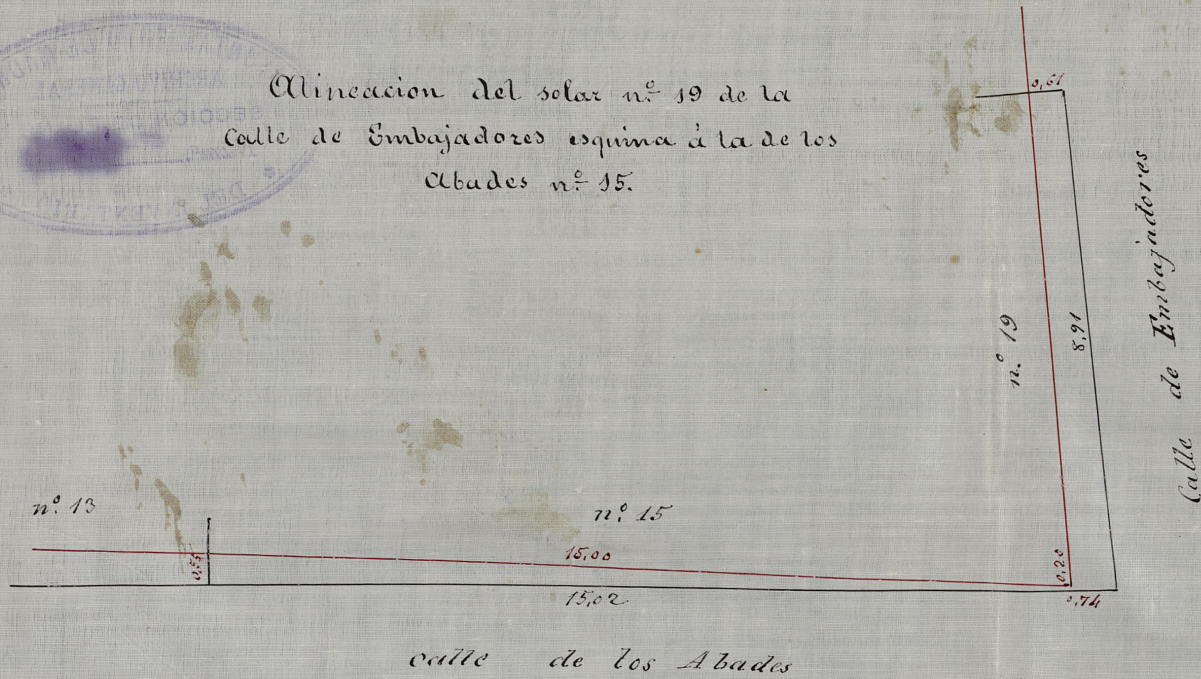 Alineacion del solar nº 19 de la
Calle de Embajadores esquina á la de los
Abades nº 15.
0,61
Calle de Embajadores
n.º 19
8,91
n.º 13
n.º 15
0,55
15,00
0,20
15,02
0,74
calle de los Abades